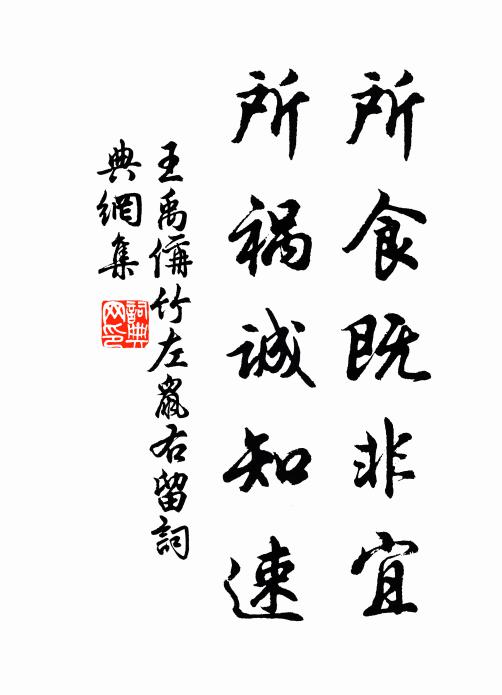 所食既非宜
所禍誠知速
王禹偁竹左鼠右留詞
典網集
詞典
网印